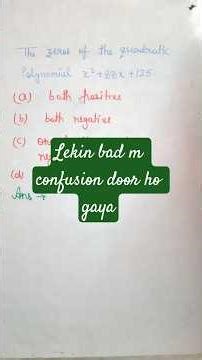 The zeros of the quadratic
Polynomial x² + 88x + 125
(a) both positive
(b) both negative
(c)
(d)
Ans →
Lekin bad m
confusion door ho
gaya